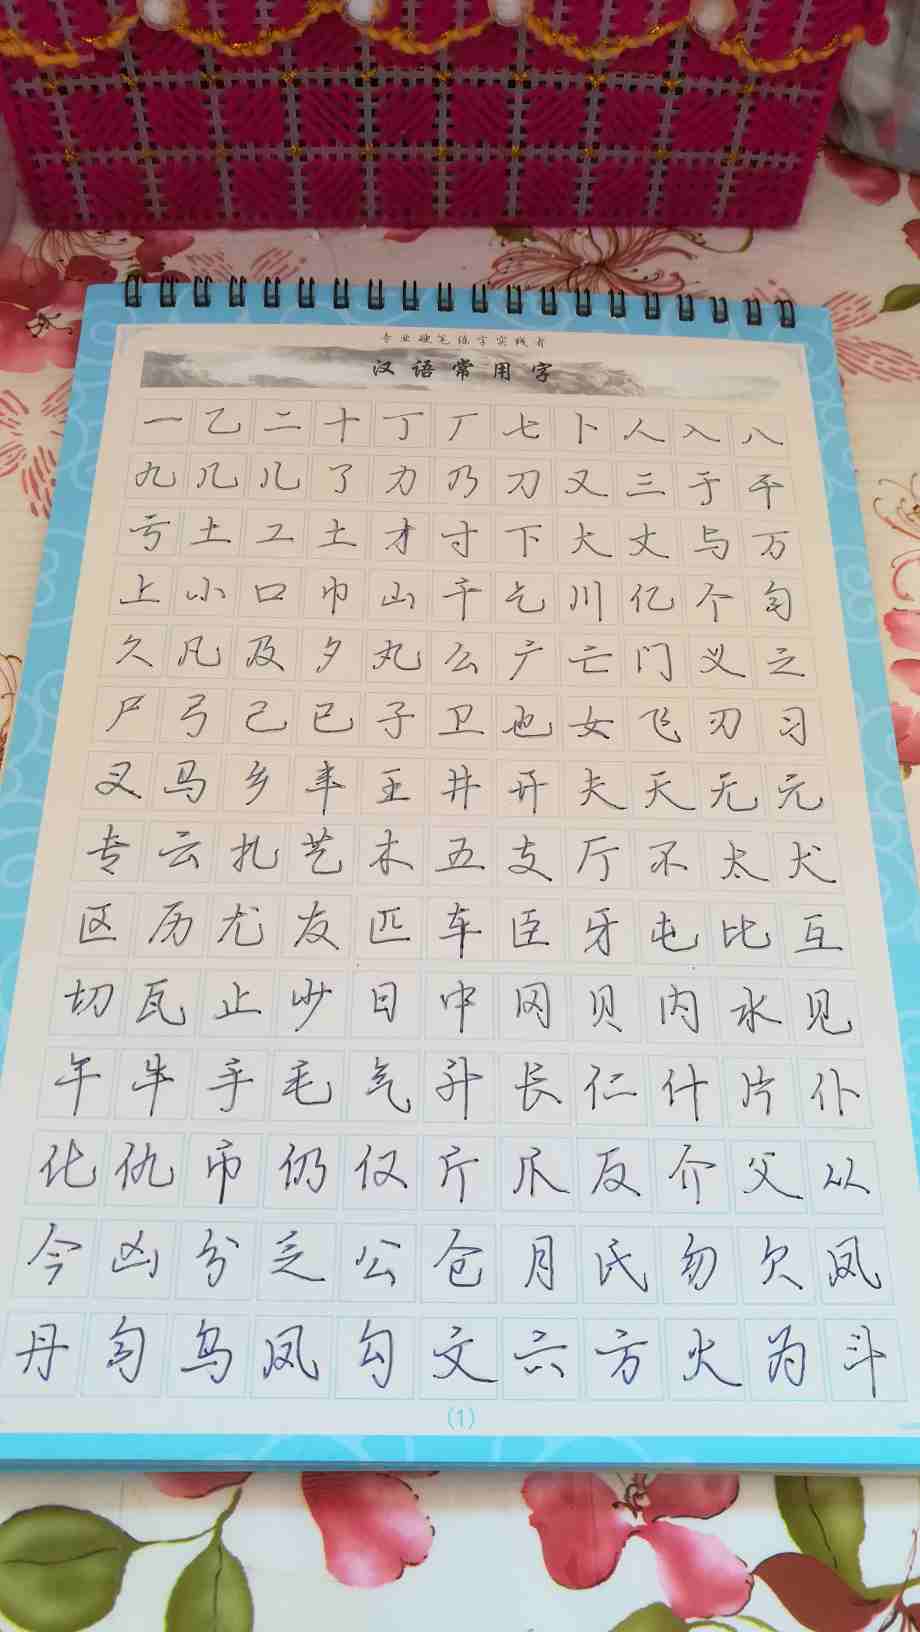 专业硬笔练字实践者
汉语常用字
一乙二十丁厂七卜人入八
九几儿了力乃刀又三于干
亏土工土才寸下大丈与万
上小口巾山千乞川亿个匀
久凡及夕丸么广亡门义之
尸弓己已子卫也女飞刃习
叉马乡丰王井开夫天无元
专云扎艺木五支厅不太犬
区历尤友匹车臣牙屯比互
切瓦止少日中冈贝内水见
午牛手毛气升长仁什片仆
化仇币仍仅斤爪反介父从
今凶分乏公仓月氏勿欠风
丹匀乌凤勾文六方火为斗
(1)